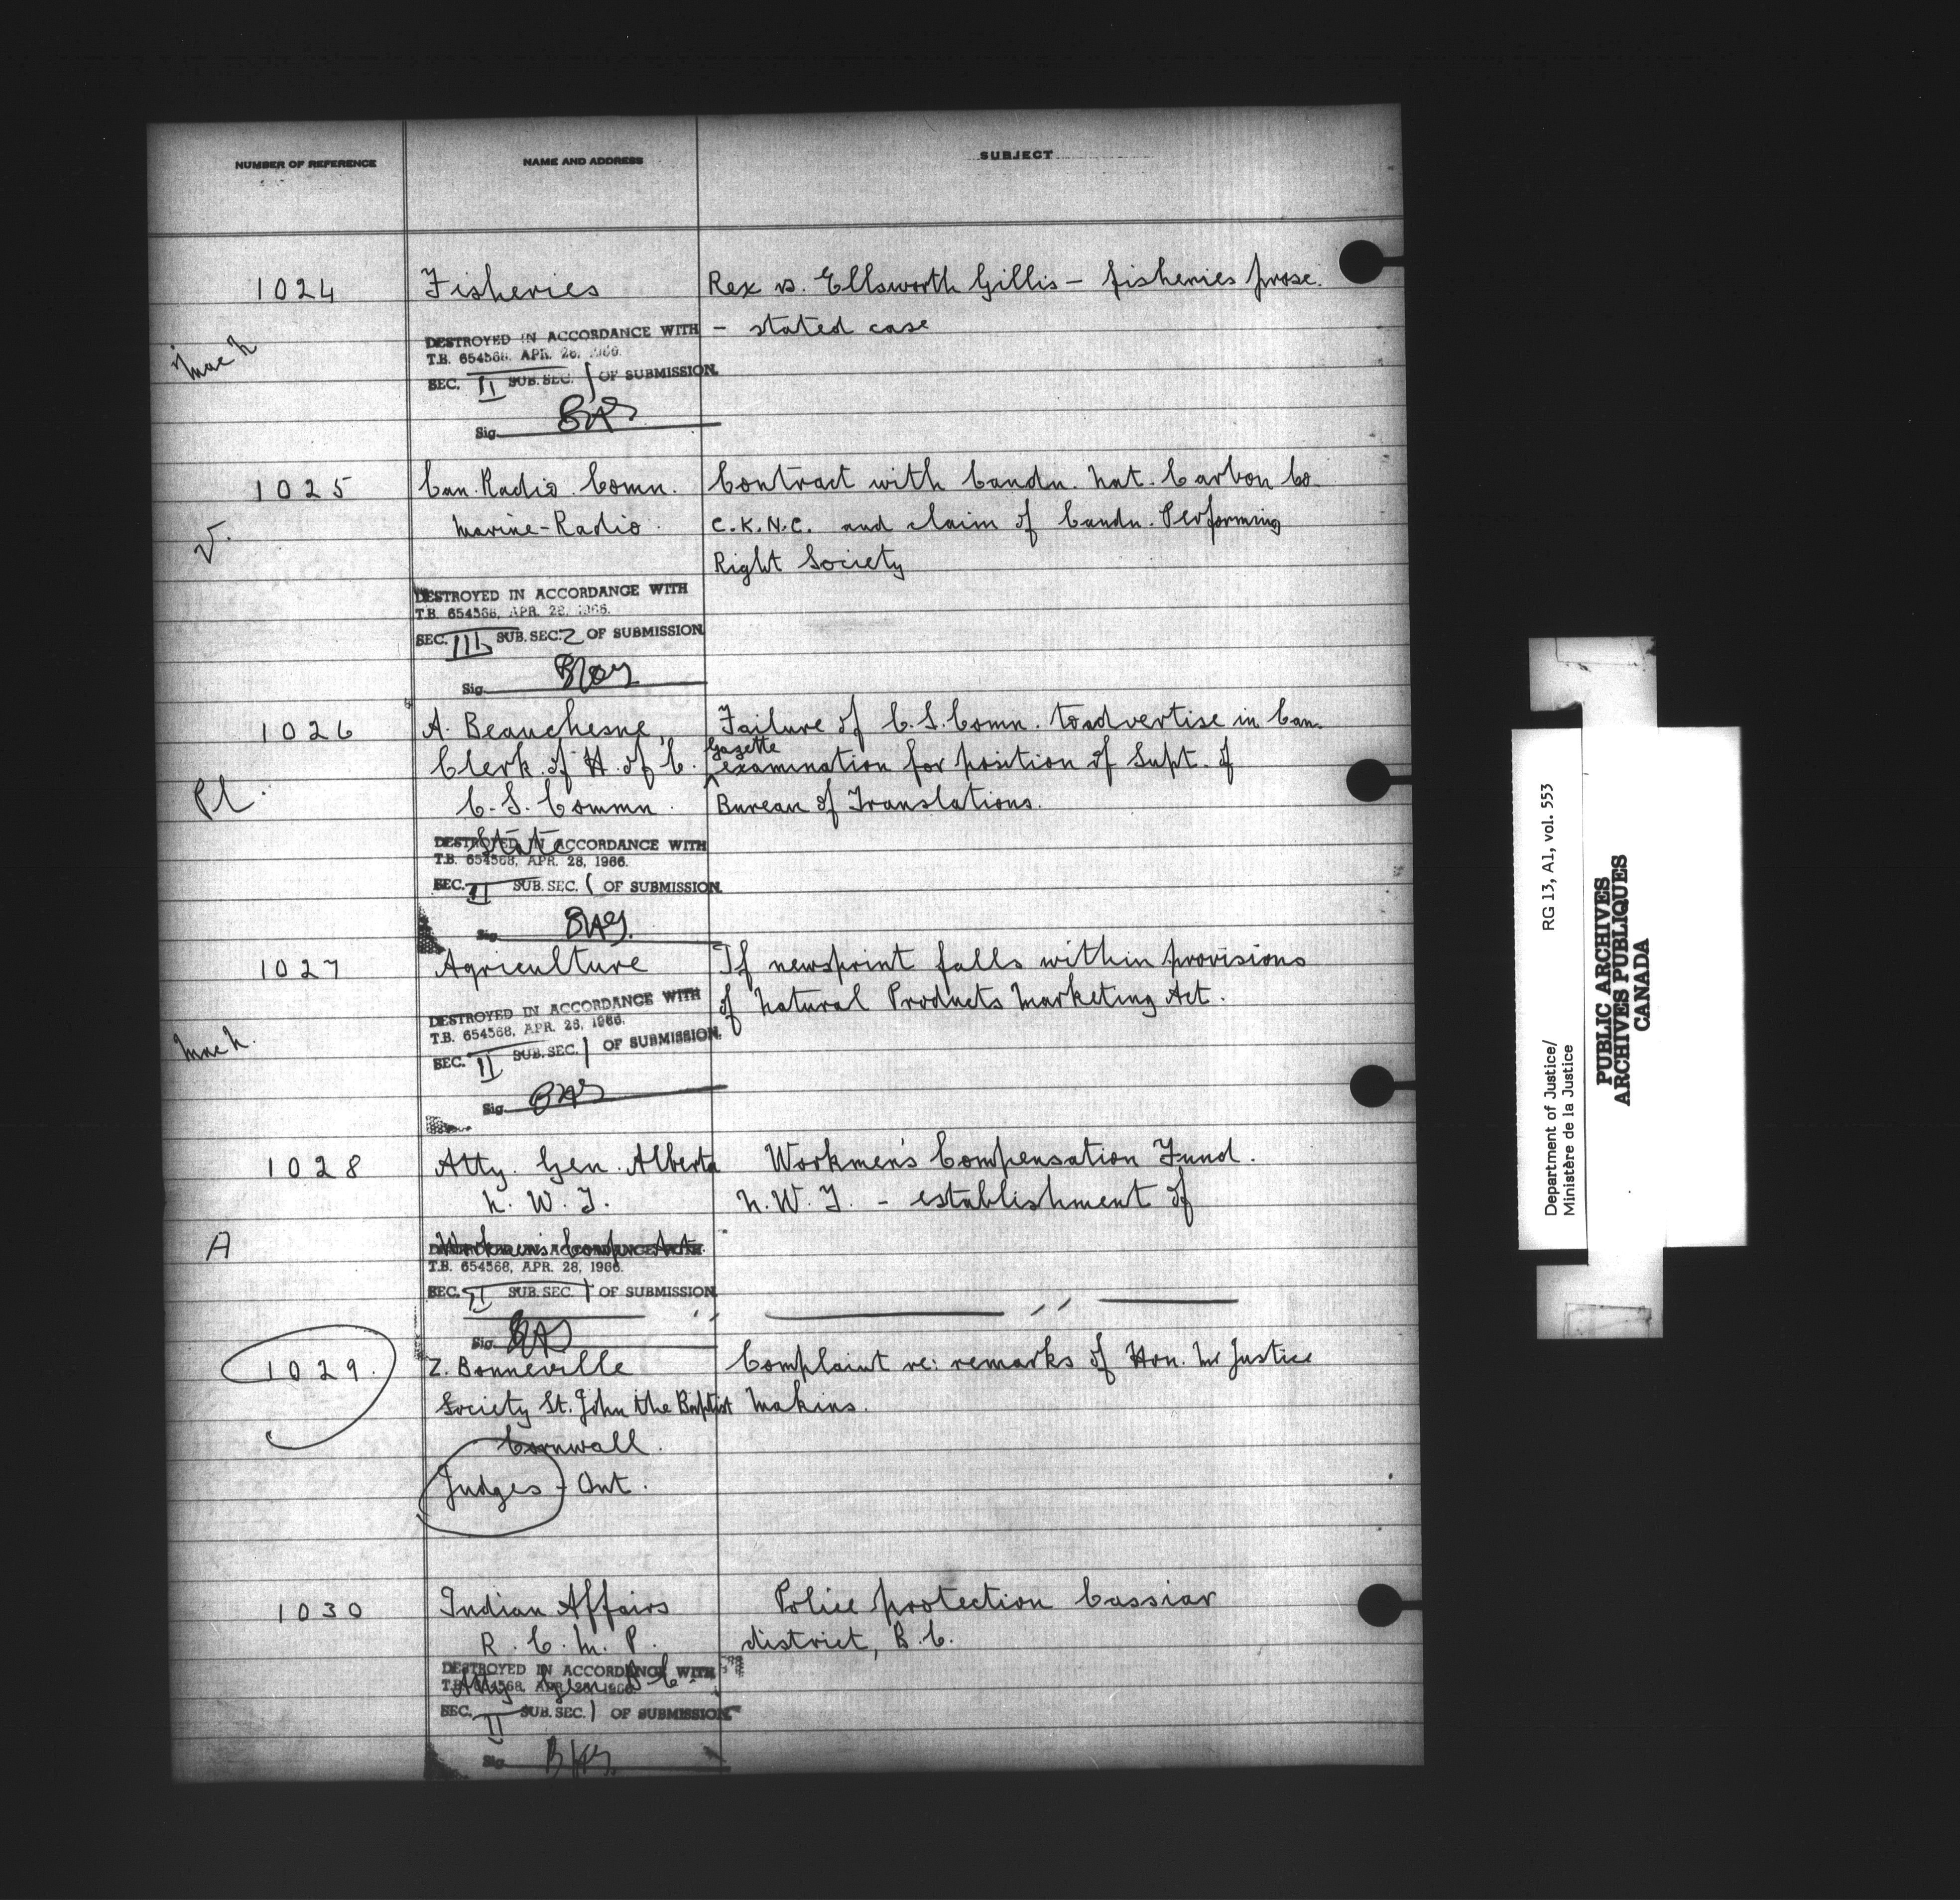 NUMBER OF REFERENCE NAME AND ADDRESS SUBJECT
1024 Fisheries Rex vs. Ellsworth Gillis - fisheries prose.
- stated case
DESTROYED IN ACCORDANCE WITH
T.B. 654568, APR. 28, 1966.
SEC. II SUB. SEC. 1 OF SUBMISSION.
Sig.
1025 Can. Radio Comn. Contract with Candn. Nat. Carbon Co.
Marine-Radio. C.K.N.C. and claim of Candn. Performing
Right Society
DESTROYED IN ACCORDANCE WITH
T.B. 654568, APR. 28, 1966.
SEC. III SUB. SEC. 2 OF SUBMISSION
Sig.
1026 A. Beauchesne, Failure of C.S. Comn. to advertise in Can.
Gazette
Clerk of H. of C. examination for position of Supt. of
Pl. C.S. Commn. Bureau of Translations.
State
DESTROYED IN ACCORDANCE WITH
T.B. 654568, APR. 28, 1966.
SEC. II SUB. SEC. 1 OF SUBMISSION.
Sig.
1027 Agriculture If newsprint falls within provisions
of Natural Products Marketing Act.
DESTROYED IN ACCORDANCE WITH
T.B. 654568, APR. 28, 1966.
SEC. II SUB. SEC. 1 OF SUBMISSION.
Sig.
1028 Atty. Gen. Alberta Workmen's Compensation Fund.
N.W.T. N.W.T. - establishment of
A Workmen's Comp. Act.
DESTROYED IN ACCORDANCE WITH
T.B. 654568, APR. 28, 1966.
SEC. II SUB. SEC. 1 OF SUBMISSION
Sig.
1029. Z. Bonneville Complaint re: remarks of Hon. Mr Justice
Society St. John the Baptist Makins.
Cornwall.
Judges - Ont.
1030 Indian Affairs Police protection Cassiar
R.C.M.P. district, B.C.
Atty Gen B.C.
DESTROYED IN ACCORDANCE WITH
T.B. 654568, APR. 28, 1966.
SEC. II SUB. SEC. 1 OF SUBMISSION
Sig.
Department of Justice/ RG 13, A1, vol. 553
Ministère de la Justice
PUBLIC ARCHIVES
ARCHIVES PUBLIQUES
CANADA